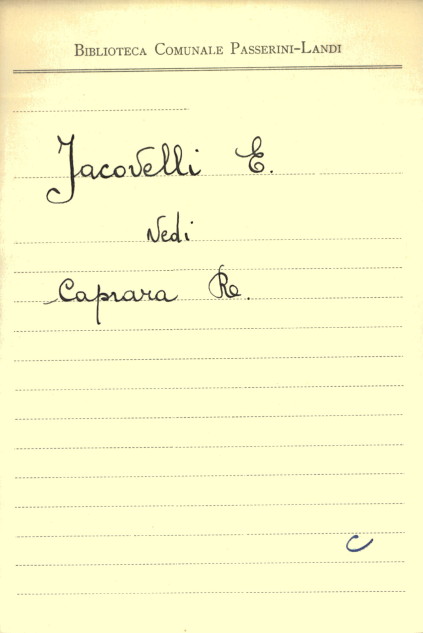 BIBLIOTECA COMUNALE PASSERINI-LANDI
Jacovelli E.
Vedi
Caprara R.
C